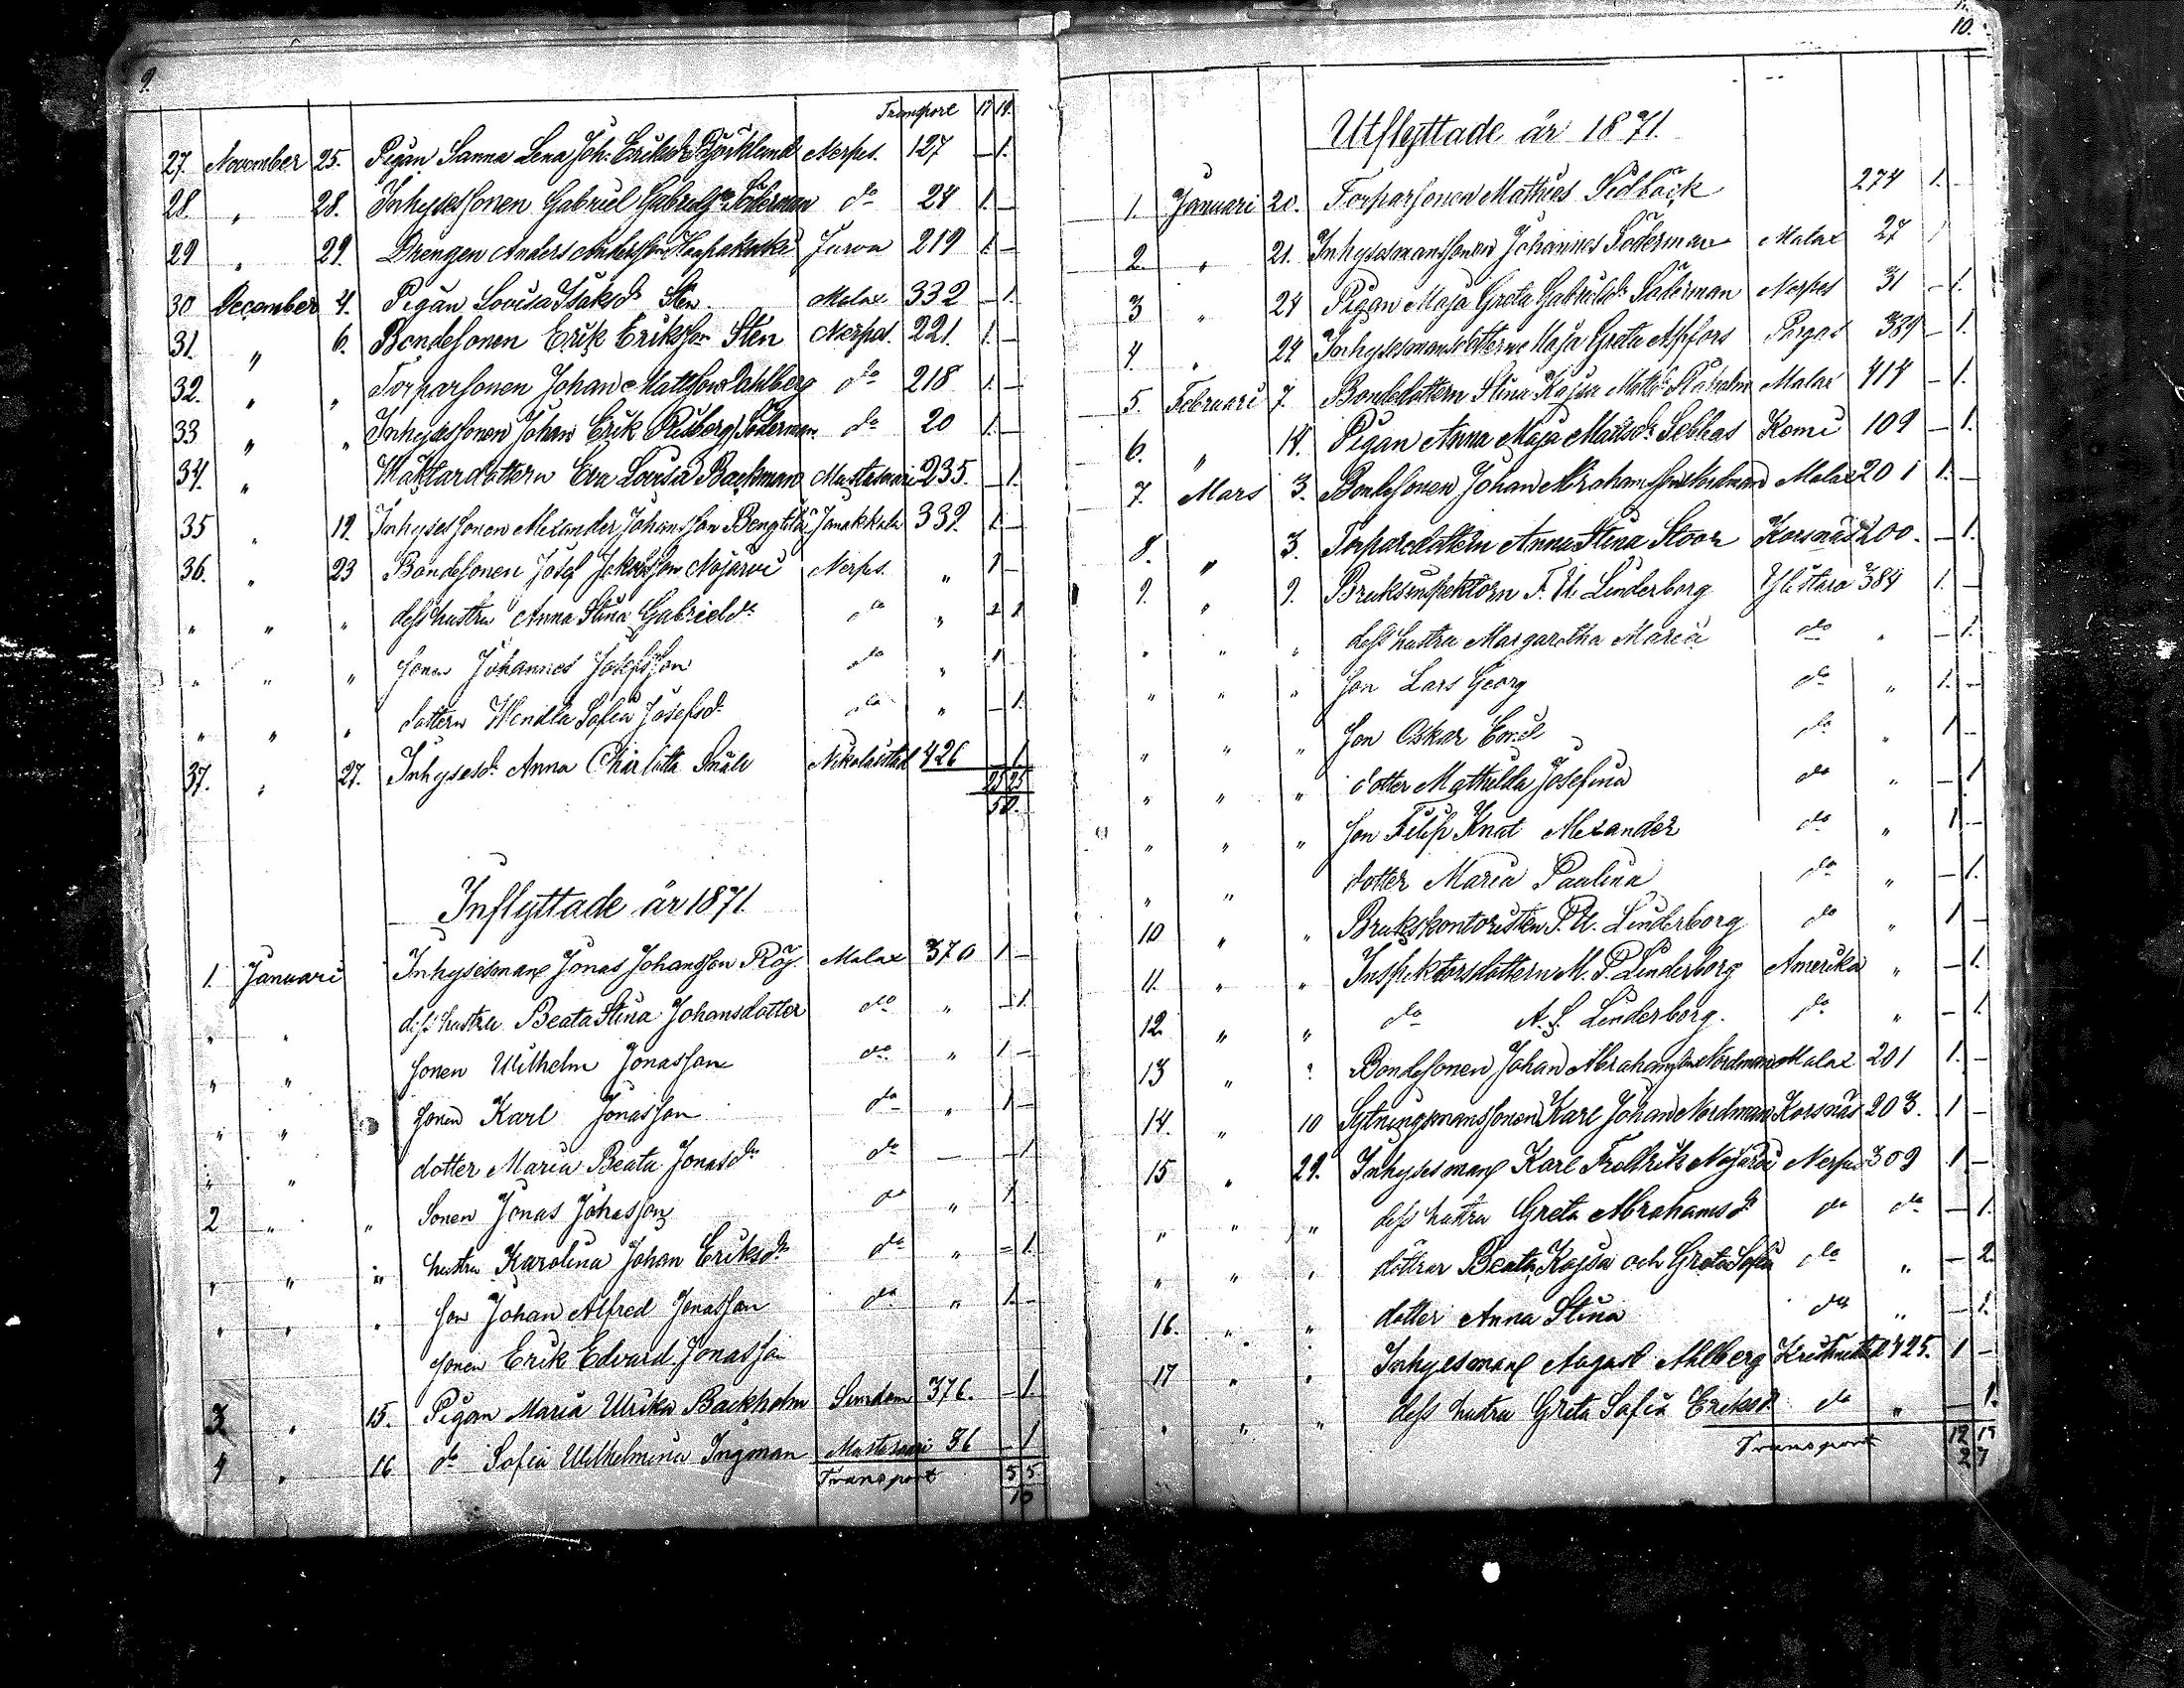 9.
Transport 17 19.
27. November 25. Pigan Sanna Lena Joh. Eriksdr Björklund Nerpes. 127 – 1.
28. " 28. Inhysessonen Gabriel Gabrielss. Söderman do 24 1. –
29 " 29. Drengen Anders Andersson Jurva 219 1. –
30 December 4. Pigan Lovisa Isaksdr Sten. Malax 332 – 1.
31. " 6. Bondesonen Erik Eriksson Sten Nerpes. 221. 1. –
32. " " Torparsonen Johan Mattsson Dahlberg do 218 1. –
33 " " Inhysessonen Johan Erik Söderman do 20 1. –
34. " Waktardottern Eva Lovisa Backman Mustasaari 235. – 1.
35 " 19. Inhysessonen Alexander Johansson Janakkala 339. 1. –
36. " 23 Bondesonen Josef Nojärvi Nerpes. " 1 –
" " " dess hustru Anna Stina Gabrielsdr do "
" " " sonen Johannes Josefsson do " 1 –
" " " dottern Wendla Sofia Josefsdr do " – 1.
37. " 27. Inhysesdr Anna Charlotta Nikolaistad 426 – 1
25 25
50.
Inflyttade år 1871.
1. Januari Inhysesman Jonas Johansson Röj Malax 370 1 –
" " dess hustru Beata Stina Johansdotter do " – 1.
" " sonen Wilhelm Jonasson do " 1 –
" " sonen Karl Jonasson do " 1 –
" " dotter Maria Beata Jonasdr do – – 1
2 " " Sonen Jonas do " 1.
" " " hustru Karolina Johan Eriksdr do " – 1.
" " " son Johan Alfred Jonasson do " 1. –
sonen Erik Edvard Jonasson
3 " 15. Pigan Maria Ulrika Backholm Sundom 376. – 1.
4 " 16 do Sofia Wilhelmina Ingman Mustasaari 86 – 1
Transport 5 5
10
10.
Utflyttade år 1871.
1. Januari 20. Torparsonen Mathias Sidbäck 274 1. –
2. " 21. Inhysesmanssonen Johannes Söderman Malax 27 1
3 " 24 Pigan Maja Greta Gabrielsdr Söderman Nerpes 31 – 1.
4 " 24 Inhysesmansdottern Maja Greta Pargas – 1.
5. Februari 7. Bondedottern Stina Kajsa Matsdr Malax 414 – 1.
6. " 14. Pigan Anna Maja Matsdr Kemi 109 – 1.
7. Mars 3. Bondesonen Johan Abrahamsson Nordman Malax 201 1. –
8. " 3. Torparedottern Anna Stina Stoor Korsnäs 200. – 1.
9. " 9. Bruksinspektorn F. U. Linderborg Ylistaro 384 1. –
" " " dess hustru Margaretha Maria do " – 1.
" " " son Lars Georg do " 1. –
" " " son Oskar Emil do " 1 –
" " " dotter Mathilda Josefina do " – 1
" " " son Filip Knut Alexander do " 1 –
" " dotter Maria Paulina do " – 1.
10 " " Brukskontoristen P. U. Linderborg do " 1 –
11. " " Inspektorsdottern M. P. Linderborg Amerika " – 1.
12. " " do A. S. Linderborg. do " – 1.
13 " " Bondesonen Johan Abrahamsson Nordman Malax 201 1. –
14. " 10 Sytningsmanssonen Karl Johan Nordman Korsnäs 203. 1 –
15 " 29. Inhysesman Karl Fredrik Nojärvi Nerpes 309 1 –
" " " dess hustru Greta Abrahamsdr do do – 1.
" " " döttrar Beata Kajsa och Greta Sofia do " – 2
16. " " dotter Anna Stina do " – 1.
17 " " Inhysesman August Ahlberg Kristinestad 425. 1 –
" " " dess hustru Greta Sofia Eriksd. do " – 1.
Transport 12 15
27